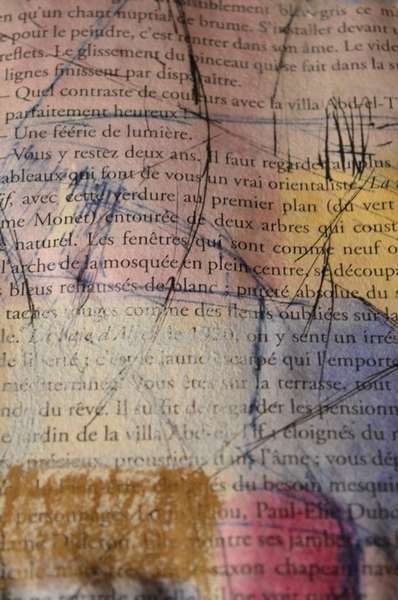 en qu'un chant nuptial de brume. S'installer devant
e pour le peindre, c'est rentrer dans son âme. Le vide
reflets. Le glissement du pinceau qui se fait dans la su
lignes finissent par disparaître.
– Quel contraste de couleurs avec la villa Abd-el-T
parfaitement heureux !
– Une féerie de lumière.
– Vous y restez deux ans. Il faut regarder au plus
ableaux qui font de vous un vrai orientaliste. La
if, avec cette verdure au premier plan (du vert
me Monet) entourée de deux arbres qui const
e naturel. Les fenêtres qui sont comme neuf o
l'arche de la mosquée en plein centre, se découpa
s bleus rehaussés de blanc ; pureté absolue du s
taches rouges comme des fleurs oubliées sur la
le. La Baie d'Alger, le 1920, on y sent un irrés
de liberté ; c'est le jaune escarpé qui l'emporte
méditerranée. Vous êtes sur la terrasse, tout
nde du rêve. Il suffit de regarder les pensionn
e jardin de la villa Abd-el-Tif ; éloignés du n
précieux, proustiens dans l'âme ; vous dép
du besoin mesquin
personnages Paul-Elie Dubo
montre ses jambes, ses
saxon chapeau